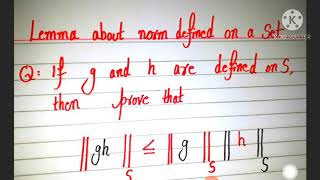 Lemma about norm defined on a Set
Q: If g and h are defined on S,
then prove that
||gh||_S ≤ ||g||_S ||h||_S